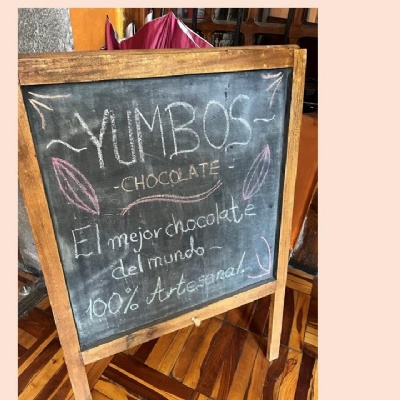 ~YUMBOS~
-CHOCOLATE-
El mejor chocolate
del mundo~
100% Artesanal.